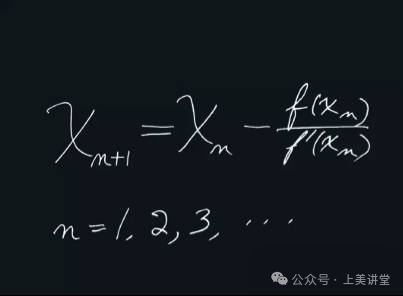 x_{n+1} = x_n − f(x_n)/f'(x_n)
n = 1, 2, 3, ...
公众号 · 上美讲堂